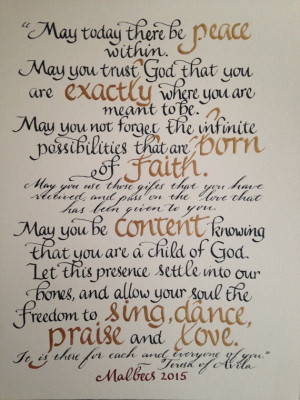 "May today there be peace
within.
May you trust God that you
are exactly where you are
meant to be.
May you not forget the infinite
possibilities that are born
of Faith.
May you use those gifts that you have
received, and pass on the love that
has been given to you.
May you be content knowing
that you are a child of God.
Let this presence settle into our
bones, and allow your soul the
freedom to sing, dance,
praise and love.
It is there for each and everyone of you."
Teresa of Avila
Malbecs 2015